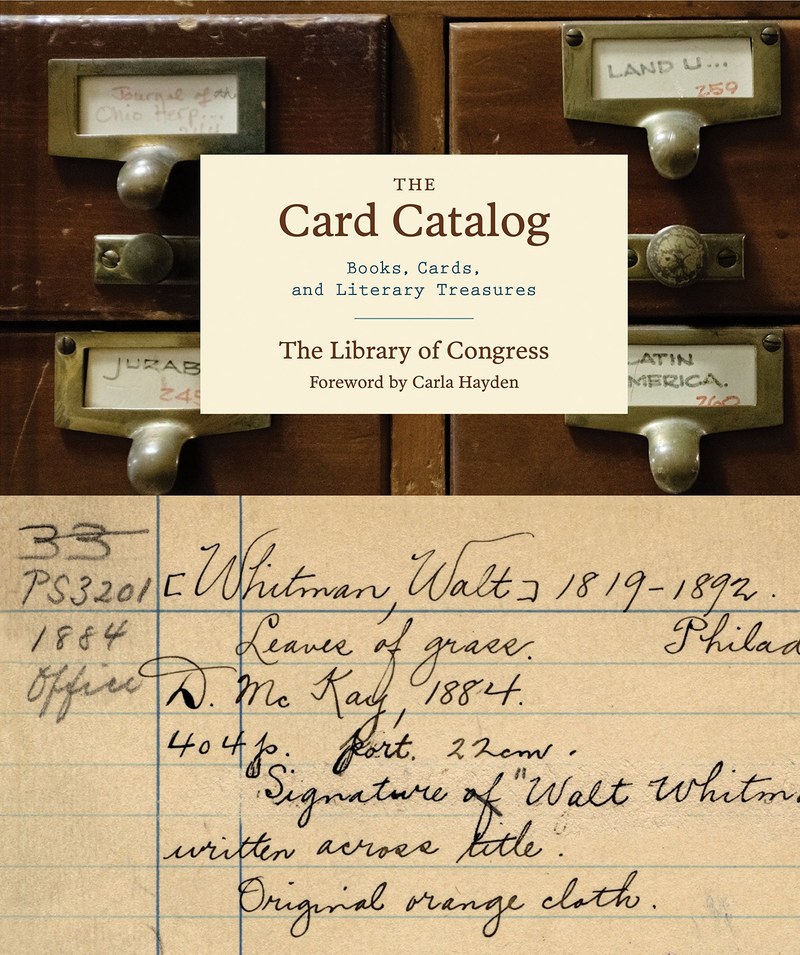 Journal of the
Ohio Herp...
LAND U...
259
THE
Card Catalog
Books, Cards,
and Literary Treasures
The Library of Congress
Foreword by Carla Hayden
JURAB
245
LATIN
AMERICA.
260
33
PS3201
1884
Office
[Whitman, Walt] 1819-1892.
Leaves of grass. Philad
D. Mc Kay, 1884.
404 p. port. 22cm.
Signature of "Walt Whitm
written across title.
Original orange cloth.